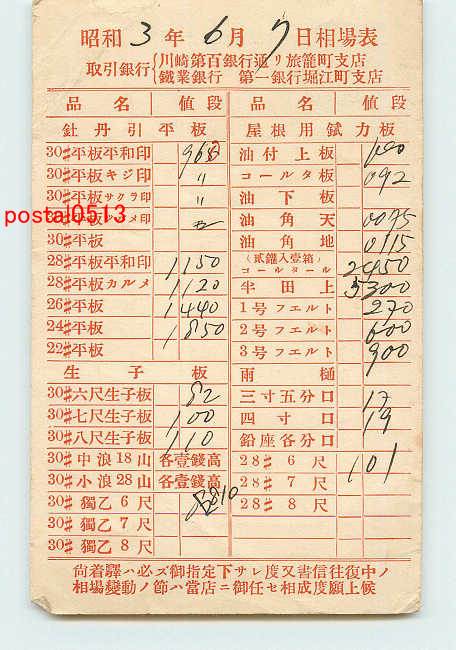 昭和 3 年 6 月 7 日相場表
取引銀行 川崎第百銀行通リ旅籠町支店
鐵業銀行 第一銀行堀江町支店
品名 値段
牡丹引平板
30#平板平和印 965
30#平板キジ印 〃
30#平板サクラ印 〃
30#平板 メ印
30#平板
28#平板平和印 1150
28#平板カルメ 1120
26#平板 1440
24#平板 1850
22#平板
生子板
30#六尺生子板 82
30#七尺生子板 100
30#八尺生子板 110
30#中浪18山 各壹錢高
30#小浪28山 各壹錢高
30#獨乙6尺 810
30#獨乙7尺
30#獨乙8尺
品名 値段
屋根用鉽力板
油付上板
コールタ板 092
油下板
油角天 0075
油角地 0115
(貳鑵入壹箱)
コールタール 2450
半田上 5300
1号フエルト 270
2号フエルト 600
3号フエルト 900
雨樋
三寸五分口 17
四寸口 19
鉛座各分口
28#6尺 101
28#7尺
28#8尺
尙着驛ハ必ズ御指定下サレ度又書信往復中ノ
相場變動ノ節ハ當店ニ御任セ相成度願上候
postal0513